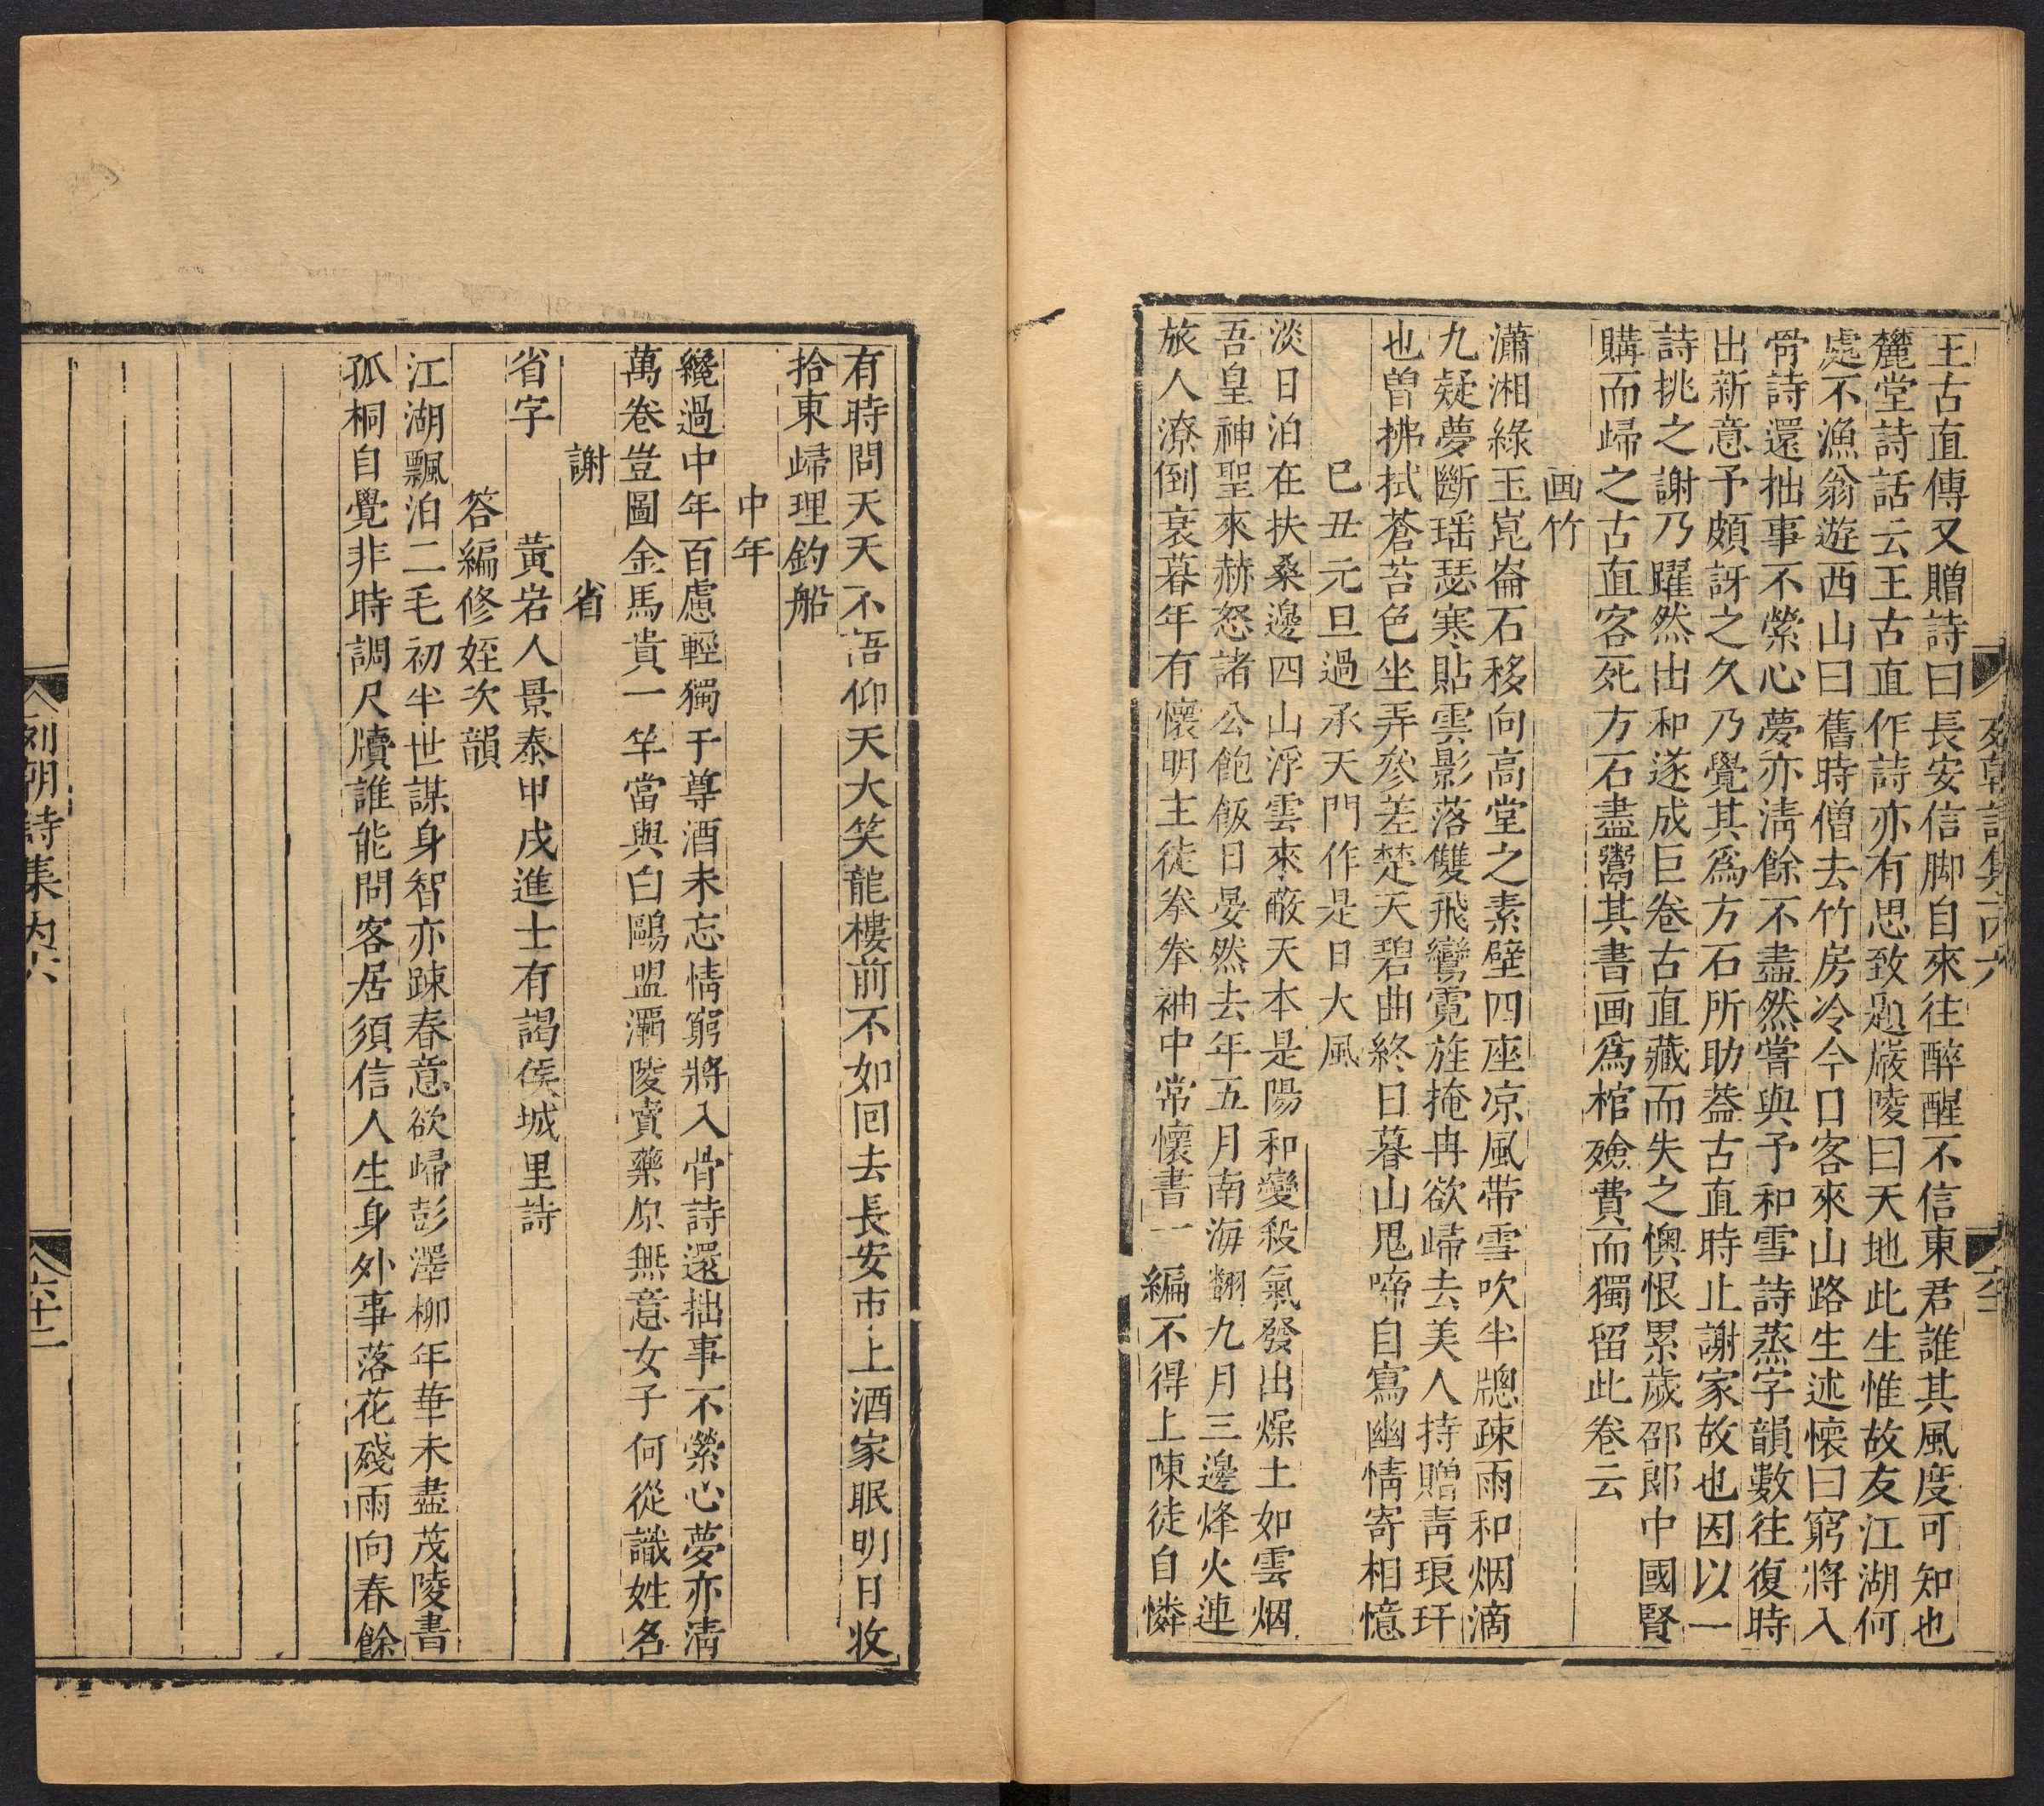 王古直傳又贈詩曰長安信脚自來往醉醒不信東君誰其風度可知也
麓堂詩話云王古直作詩亦有思致題嚴陵曰天地此生惟故友江湖何
處不漁翁遊西山曰舊時僧去竹房冷今日客來山路生述懷曰窮將入
骨詩還拙事不縈心夢亦清餘不盡然嘗與予和雪詩蒸字韻數往復時
出新意予頗訝之久乃覺其爲方石所助葢古直時止謝家故也因以一
詩挑之謝乃躍然出和遂成巨卷古直藏而失之懊恨累歲邵郎中國賢
購而歸之古直客死方石盡鬻其書画爲棺殮費而獨留此卷云
画竹
瀟湘綠玉崑崙石移向高堂之素壁四座凉風带雪吹半牕疎雨和烟滴
九疑夢斷瑶瑟寒貼雲影落雙飛鸞霓旌掩冉欲歸去美人持贈青琅玕
也曾拂拭蒼苔色坐弄參差楚天碧曲終日暮山鬼啼自寫幽情寄相憶
已丑元旦過承天門作是日大風
淡日泊在扶桑邊四山浮雲來蔽天本是陽和變殺氣發出燥土如雲烟
吾皇神聖來赫怒諸公飽飯日晏然去年五月南海翻九月三邊烽火連
旅人潦倒哀暮年有懷明主徒拳拳袖中常懷書一編不得上陳徒自憐
列朝詩集丙六
有時問天天不語仰天大笑龍樓前不如回去長安市上酒家眠明日收
拾東歸理釣船
中年
纔過中年百慮輕獨于尊酒未忘情窮將入骨詩還拙事不縈心夢亦清
萬卷豈圖金馬貴一竿當與白鷗盟灞陵賣藥原無意女子何從識姓名
謝省
省字 黃岩人景泰甲戌進士有謁侯城里詩
答編修姪次韻
江湖飄泊二毛初半世謀身智亦疎春意欲歸彭澤柳年華未盡茂陵書
孤桐自覺非時調尺牘誰能問客居須信人生身外事落花殘雨向春餘
列朝詩集丙六
六十二